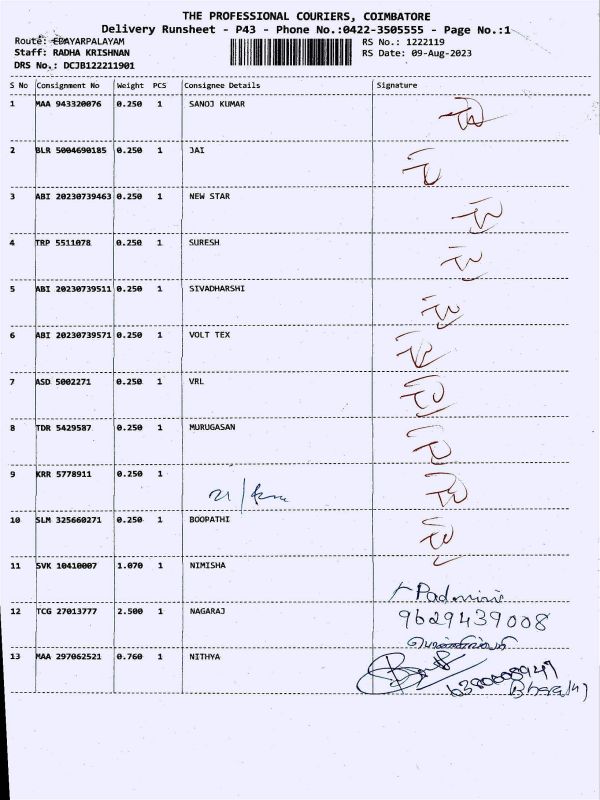 THE PROFESSIONAL COURIERS, COIMBATORE
Delivery Runsheet - P43 - Phone No.:0422-3505555 - Page No.:1
Route: EDAYARPALAYAM
RS No.: 1222119
Staff: RADHA KRISHNAN
RS Date: 09-Aug-2023
DRS No.: DCJB122211901
S No Consignment No Weight PCS Consignee Details Signature
1 MAA 943320076 0.250 1 SANOJ KUMAR
2 BLR 5004690185 0.250 1 JAI
3 ABI 20230739463 0.250 1 NEW STAR
4 TRP 5511078 0.250 1 SURESH
5 ABI 20230739511 0.250 1 SIVADHARSHI
6 ABI 20230739571 0.250 1 VOLT TEX
7 ASD 5002271 0.250 1 VRL
8 TDR 5429587 0.250 1 MURUGASAN
9 KRR 5778911 0.250 1
10 SLM 325660271 0.250 1 BOOPATHI
11 SVK 10410007 1.070 1 NIMISHA
Padmini
12 TCG 27013777 2.500 1 NAGARAJ
9629439008
13 MAA 297062521 0.760 1 NITHYA